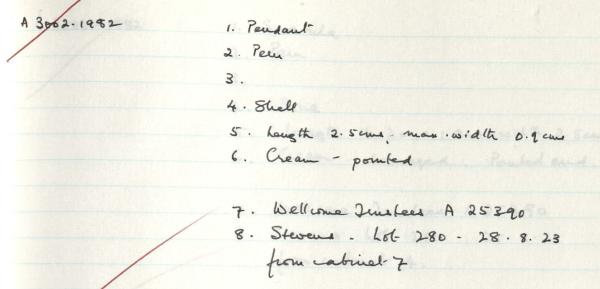 A 3002.1982
1. Pendant
2. Peru
3.
4. Shell
5. Length 2.5cms, max. width 0.9cms
6. Cream - pointed
7. Wellcome Trustees A 25390
8. Stevens. Lot 280 - 28.8.23
from cabinet 7